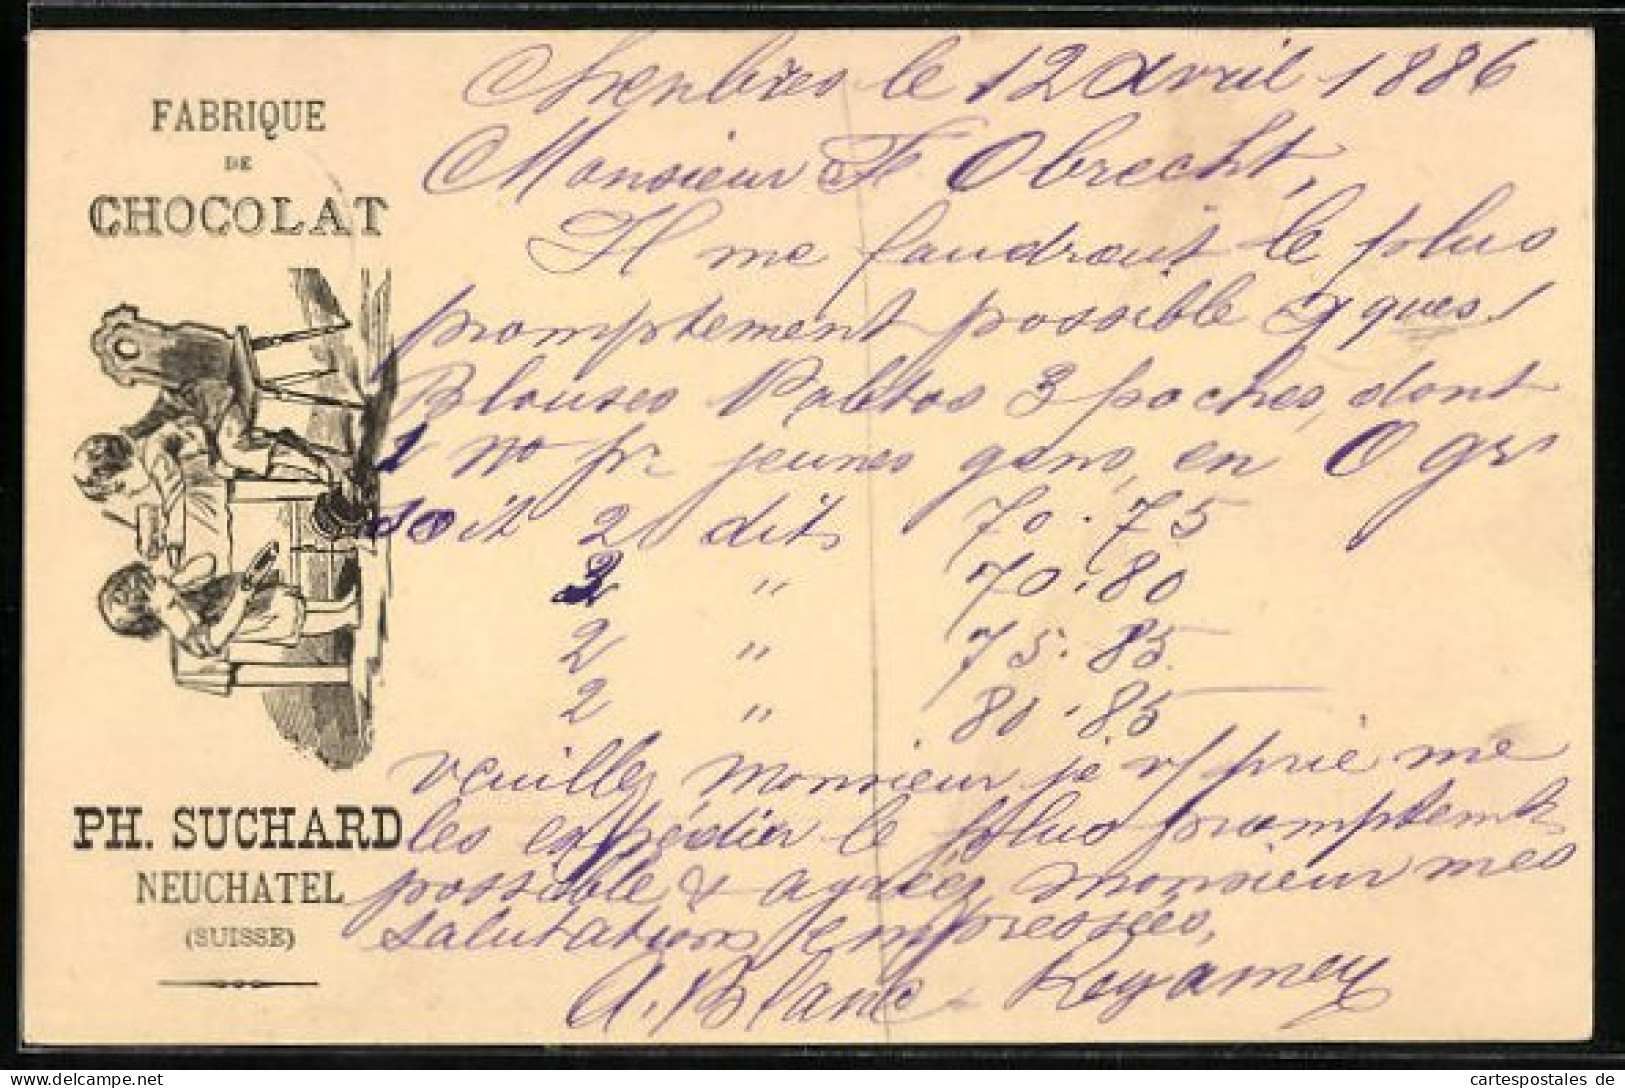 FABRIQUE
DE
CHOCOLAT
PH. SUCHARD
NEUCHATEL
(SUISSE)
Chexbres le 12 Avril 1886
Monsieur F. Obrecht,
Il me faudrait le plus
promptement possible ques
Blouses Paletos 3 poches, dont
1 No pr jeunes gens, en
soit 2 dits 70.75
3 " 70.80
2 " 75.85
2 " 80.85
veuillez Monsieur je v/ prie me
les expédier le plus promptemt
possible & agréez Monsieur mes
salutations empressées,
A. Blanc Regamey
cartespostales de